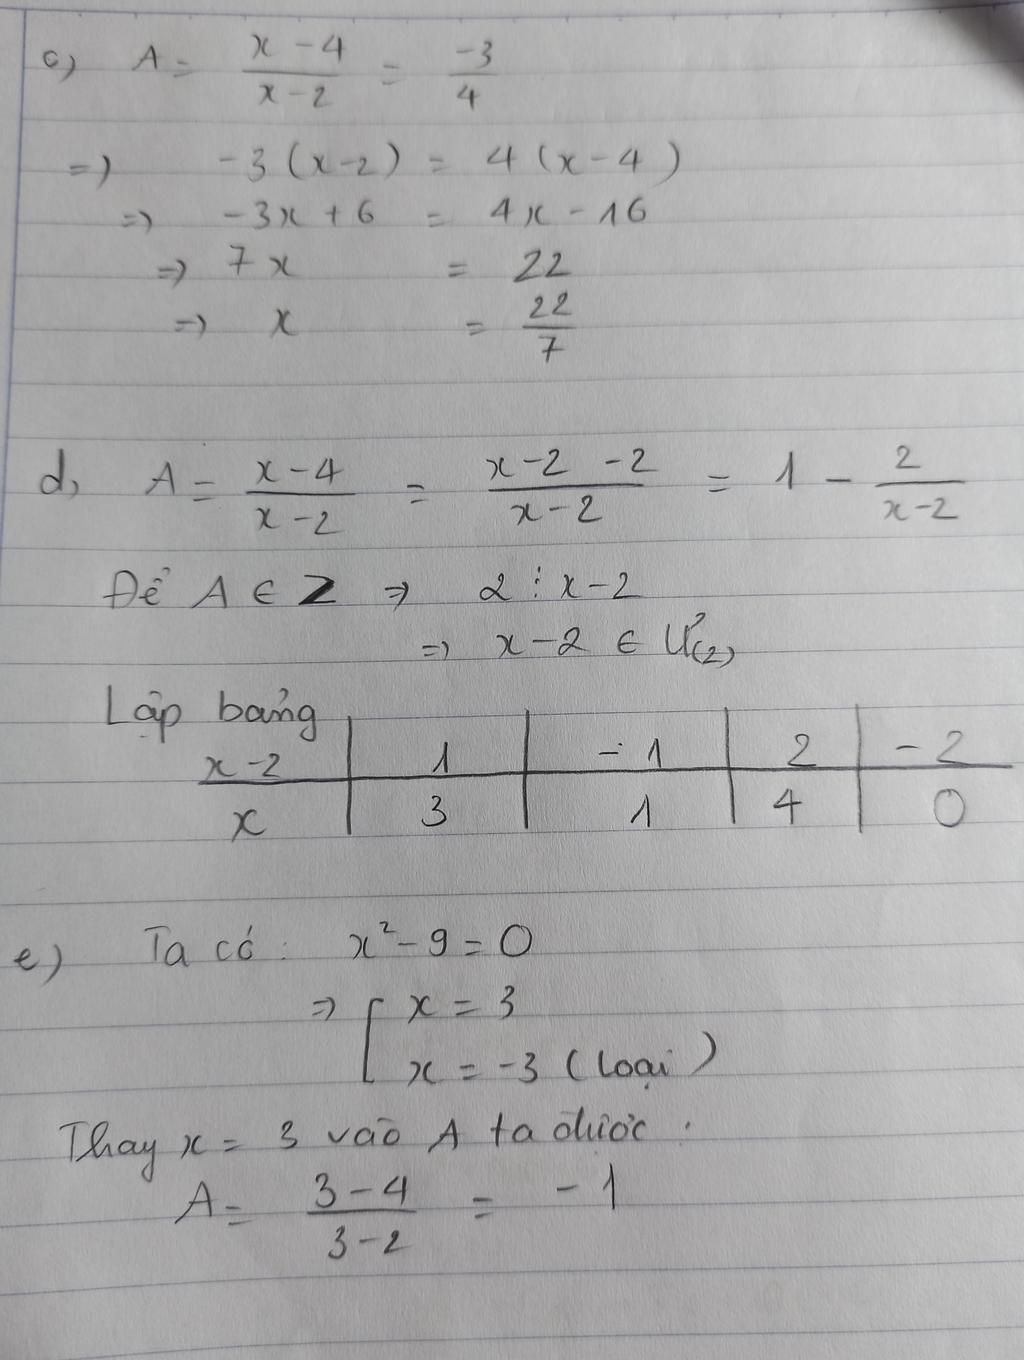 c) A = (x - 4)/(x - 2) = -3/4
=> -3(x-2) = 4(x-4)
=> -3x + 6 = 4x - 16
=> 7x = 22
=> x = 22/7
d, A = (x-4)/(x-2) = (x-2-2)/(x-2) = 1 - 2/(x-2)
Để A ∈ Z => 2 ⋮ x-2
=> x-2 ∈ Ư(2)
Lập bảng
x-2 | 1 | -1 | 2 | -2
x | 3 | 1 | 4 | 0
e) Ta có: x² - 9 = 0
=> [ x = 3
x = -3 (loại)
Thay x = 3 vào A ta được:
A = (3-4)/(3-2) = -1